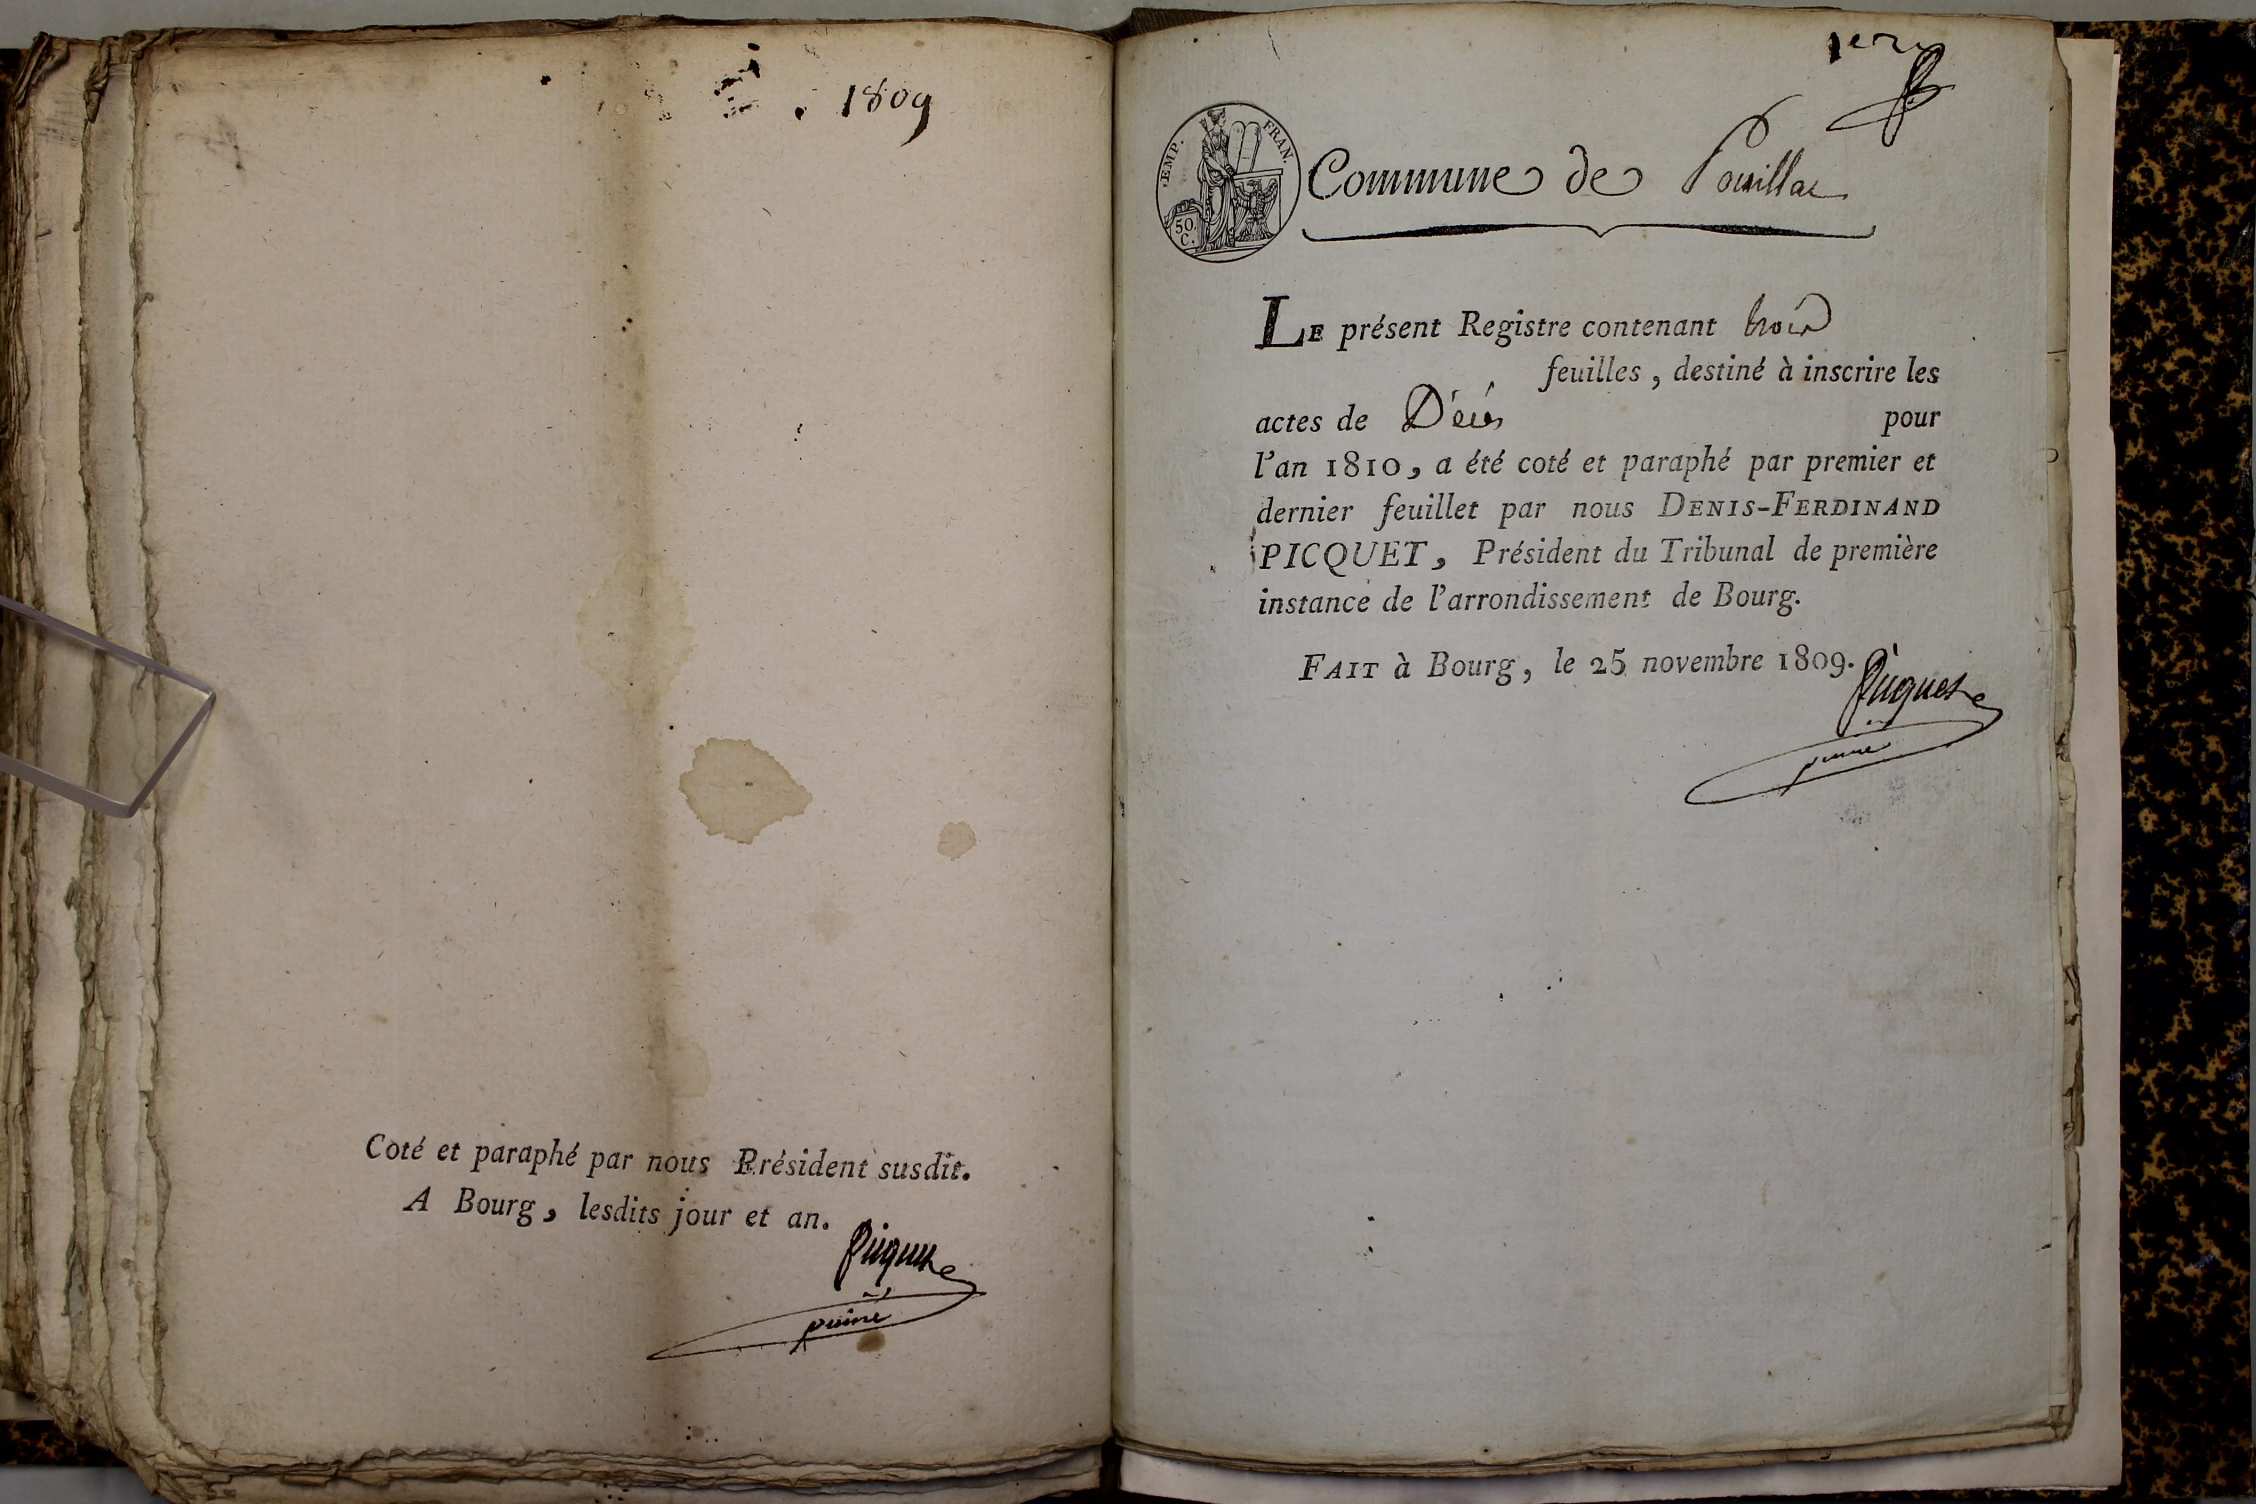 1809
Coté et paraphé par nous Président susdit.
A Bourg, lesdits jour et an.
Picquet
puiné
1er
EMP. FRAN.
50.
C.
Commune de Pouillat
LE présent Registre contenant trois
feuilles, destiné à inscrire les
actes de Décès pour
l'an 1810, a été coté et paraphé par premier et
dernier feuillet par nous DENIS-FERDINAND
PICQUET, Président du Tribunal de première
instance de l'arrondissement de Bourg.
FAIT à Bourg, le 25 novembre 1809.
Picquet
puiné